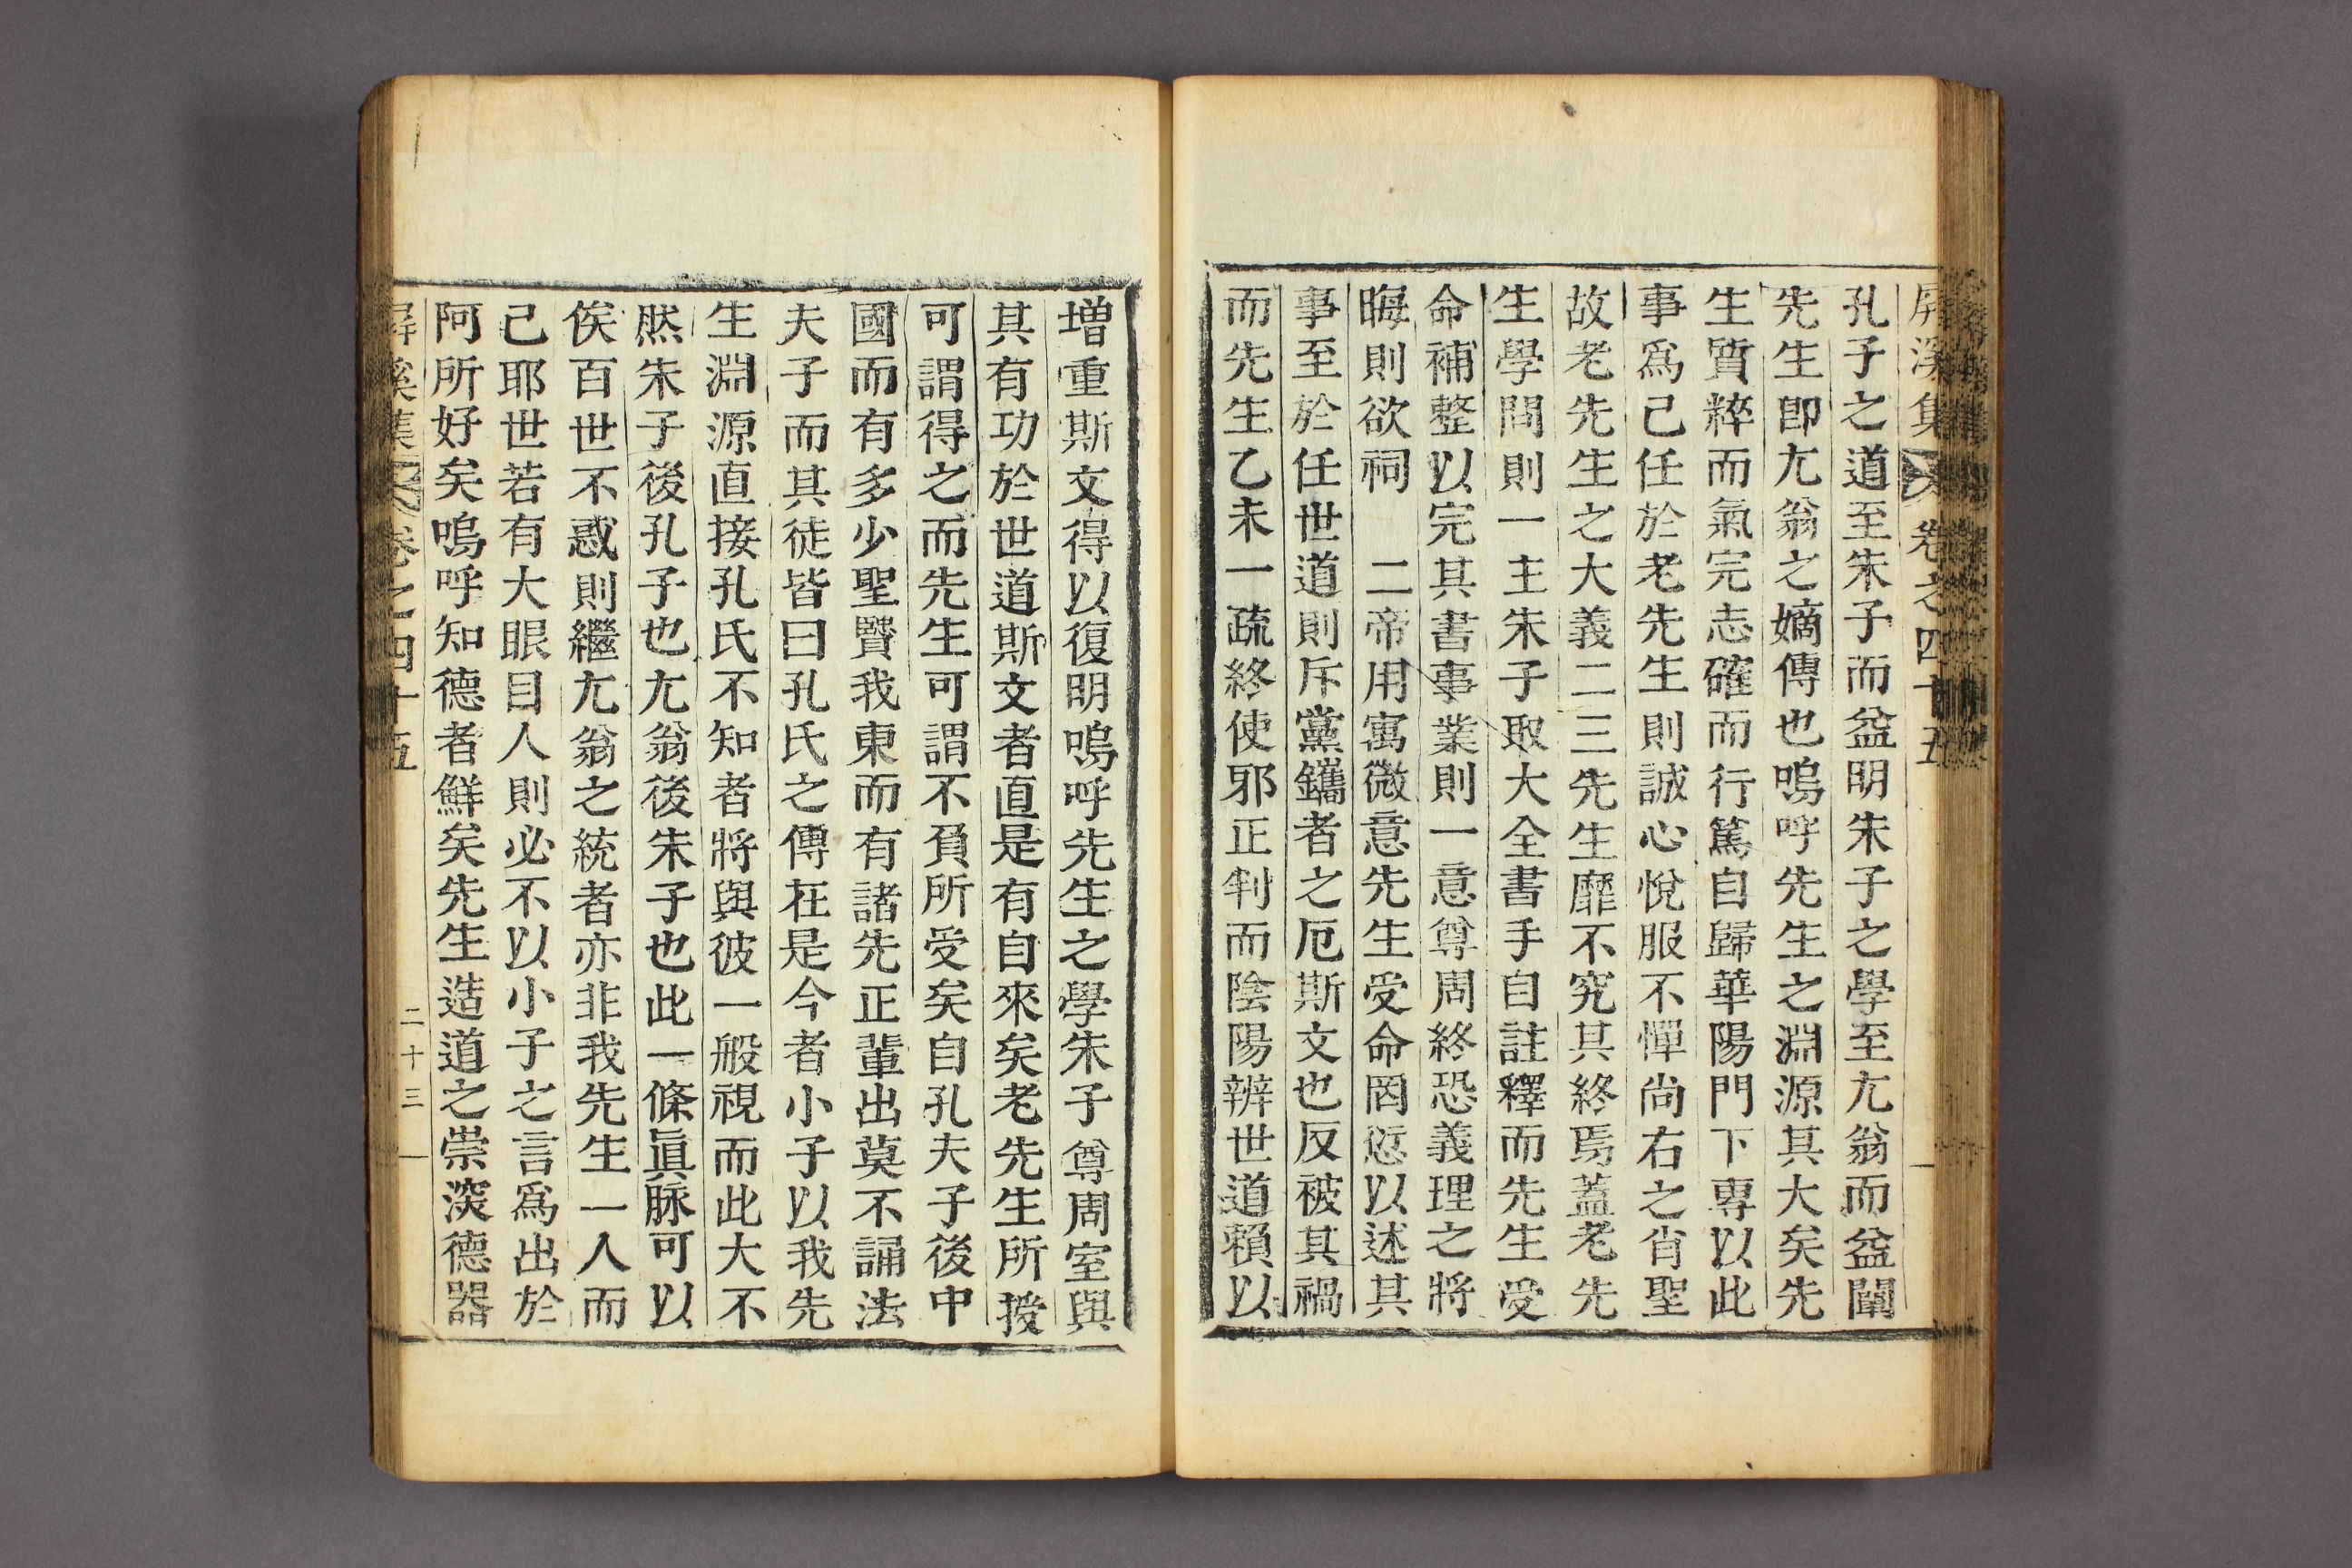 屛溪集 卷之四十五
孔子之道至朱子而益明朱子之學至尤翁而益闡
先生卽尤翁之嫡傳也嗚呼先生之淵源其大矣先
生質粹而氣完志確而行篤自歸華陽門下專以此
事爲己任於老先生則誠心悅服不憚尙右之肖聖
故老先生之大義二三先生靡不究其終焉蓋老先
生學問則一主朱子取大全書手自註釋而先生受
命補整以完其書事業則一意尊周終恐義理之將
晦則欲祠 二帝用寓微意先生受命罔愆以述其
事至於任世道則斥黨鑴者之厄斯文也反被其禍
而先生乙未一疏終使邪正判而陰陽辨世道賴以
增重斯文得以復明嗚呼先生之學朱子尊周室與
其有功於世道斯文者直是有自來矣老先生所授
可謂得之而先生可謂不負所受矣自孔夫子後中
國而有多少聖賢我東而有諸先正輩出莫不誦法
夫子而其徒皆曰孔氏之傳在是今者小子以我先
生淵源直接孔氏不知者將與彼一般視而此大不
然朱子後孔子也尤翁後朱子也此一條眞脉可以
俟百世不惑則繼尤翁之統者亦非我先生一人而
己耶世若有大眼目人則必不以小子之言爲出於
阿所好矣嗚呼知德者鮮矣先生造道之崇深德器
屛溪集 卷之四十五 二十三